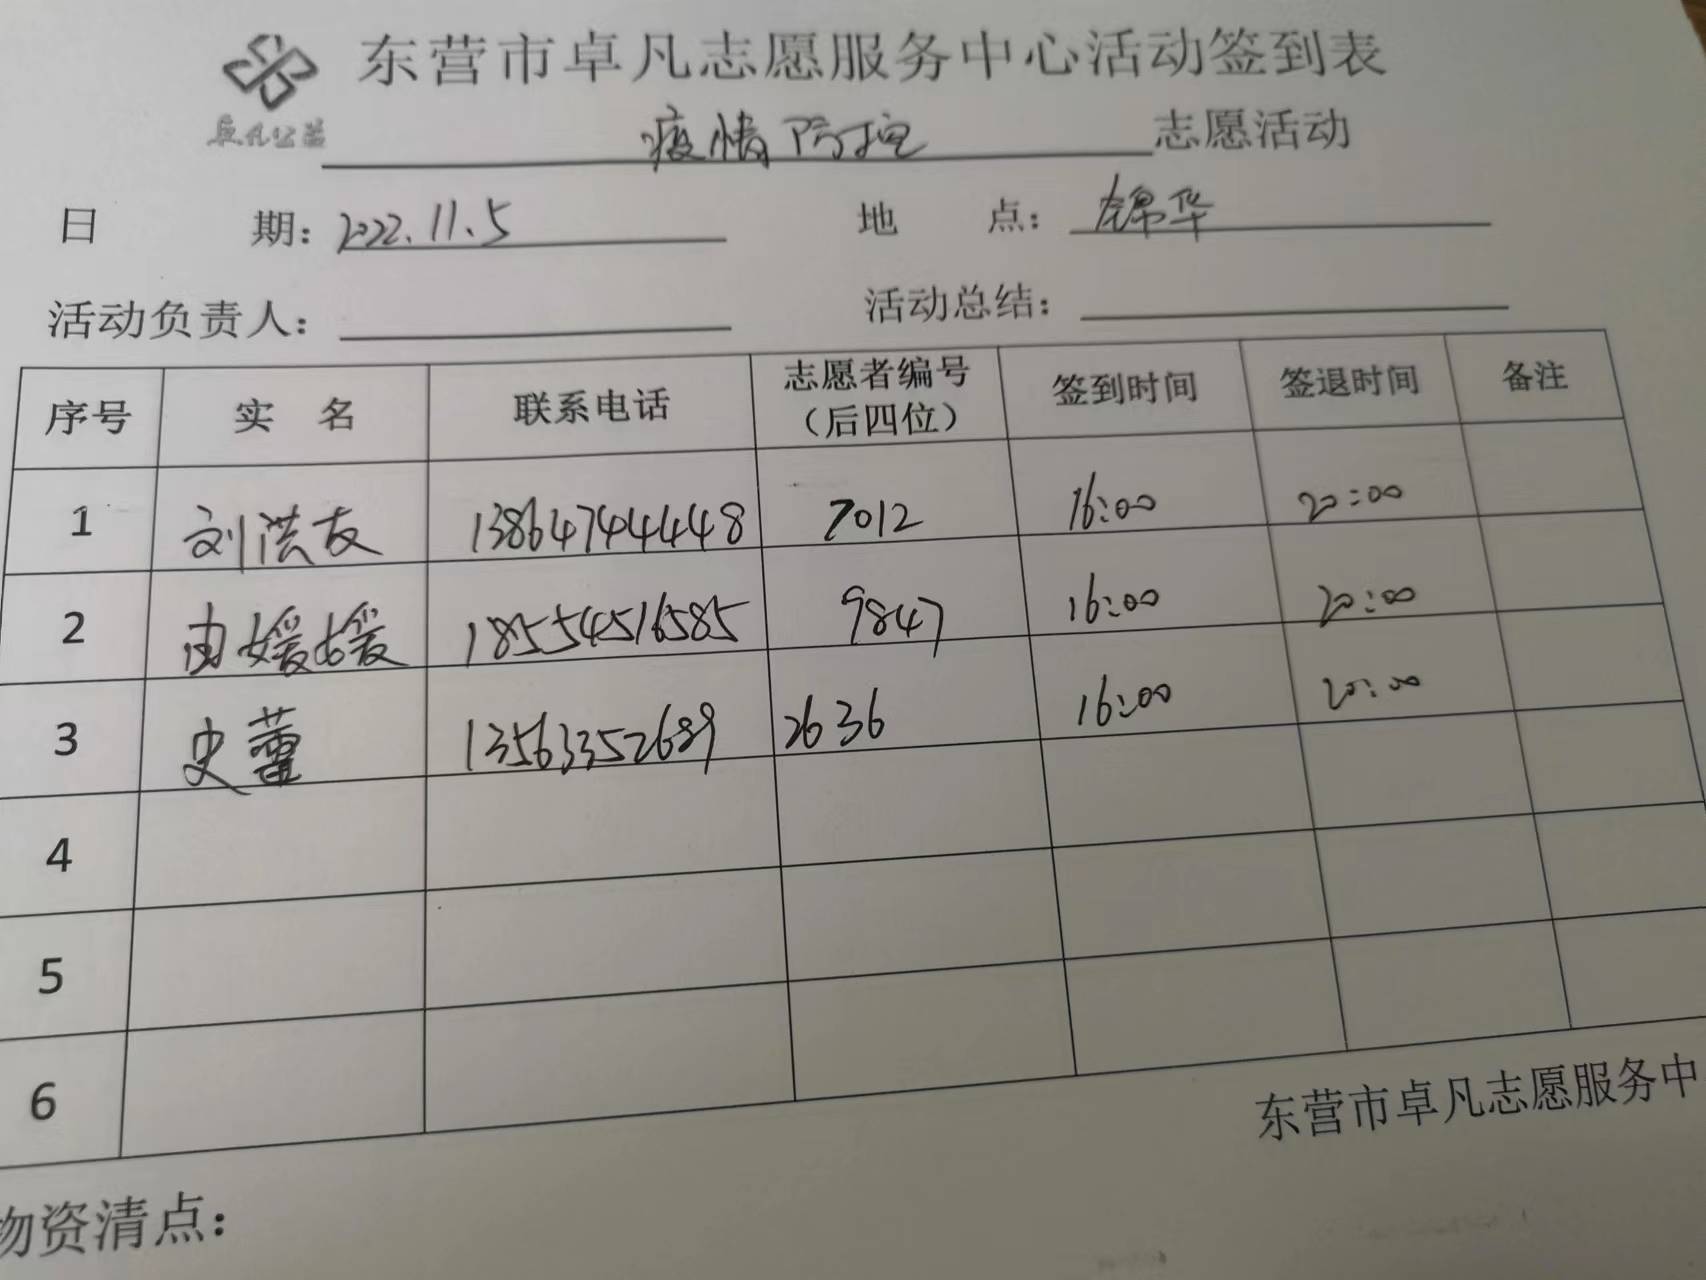 东营市卓凡志愿服务中心活动签到表
卓凡公益
疫情防控 志愿活动
日 期: 2022.11.5 地 点: 锦华
活动负责人: 活动总结:
序号 实 名 联系电话 志愿者编号（后四位） 签到时间 签退时间 备注
1 刘洪友 13864744448 7012 16:00 20:00
2 由媛媛 18554516585 9847 16:00 20:00
3 史蕾 13563352689 2636 16:00 20:00
4
5
6
东营市卓凡志愿服务中
物资清点: